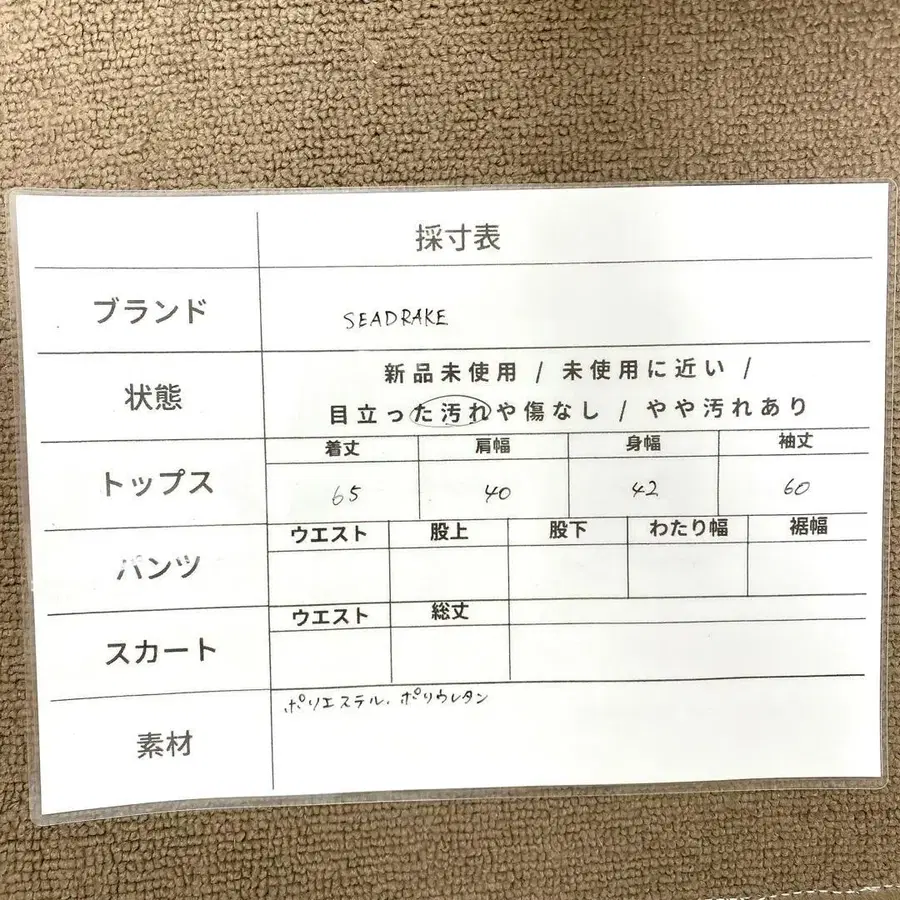 採寸表
ブランド SEADRAKE
状態 新品未使用 / 未使用に近い /
目立った汚れや傷なし / やや汚れあり
トップス 着丈 肩幅 身幅 袖丈
65 40 42 60
パンツ ウエスト 股上 股下 わたり幅 裾幅
スカート ウエスト 総丈
素材 ポリエステル、ポリウレタン